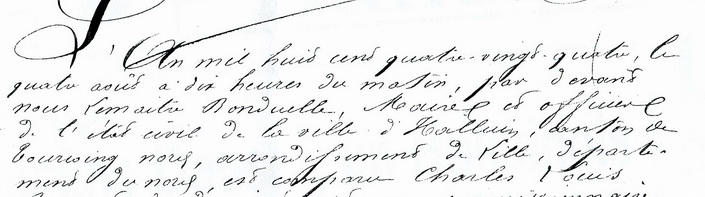 L'An mil huit cent quatre-vingt-quatre, le
quatre août à dix heures du matin, par devant
nous Lemaitre Bonduelle, Maire et officier
de l'état civil de la ville d'Halluin, canton de
tourcoing nord, arrondissement de Lille, départe-
ment du nord, est comparu Charles Louis